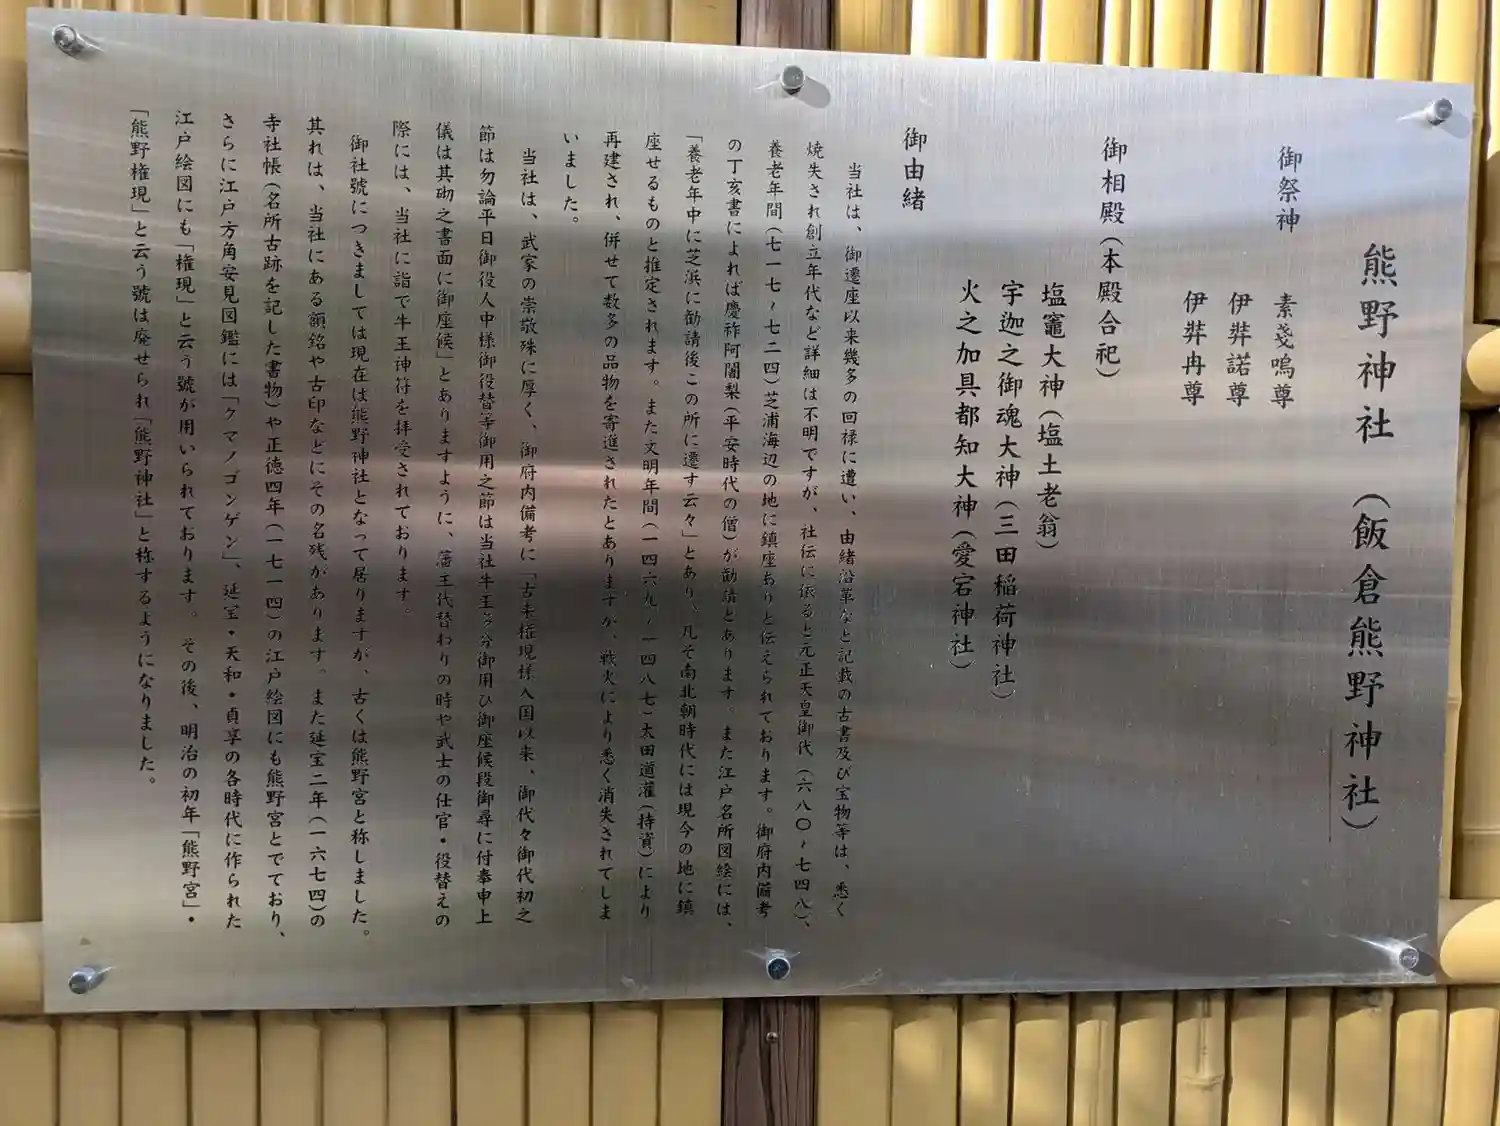 熊野神社 (飯倉熊野神社)
御祭神 素戔嗚尊
伊弉諾尊
伊弉冉尊
御相殿(本殿合祀)
塩竈大神(塩土老翁)
宇迦之御魂大神(三田稲荷神社)
火之加具都知大神(愛宕神社)
御由緒
当社は、御遷座以来幾多の回禄に遭い、由緒沿革など記載の古書及び宝物等は、悉く
焼失され創立年代など詳細は不明ですが、社伝に依ると元正天皇御代(六八〇~七四八)、
養老年間(七一七~七二四)芝浦海辺の地に鎮座ありと伝えられております。御府内備考
の丁亥書によれば慶祚阿闍梨(平安時代の僧)が勧請とあります。また江戸名所図絵には、
「養老年中に芝浜に勧請後この所に遷す云々」とあり、凡そ南北朝時代には現今の地に鎮
座せるものと推定されます。また文明年間(一四六九~一四八七)太田道灌(持資)により
再建され、併せて数多の品物を寄進されたとありますが、戦火により悉く消失されてしま
いました。
当社は、武家の崇敬殊に厚く、御府内備考に「古来権現様入国以来、御代々御代初之
節は勿論平日御役人中様御役替等御用之節は当社牛王多分御用ひ御座候段御尋に付奉申上
儀は其砌之書面に御座候」とありますように、藩王代替わりの時や武士の仕官・役替えの
際には、当社に詣で牛王神符を拝受されております。
御社號につきましては現在は熊野神社となって居りますが、古くは熊野宮と称しました。
其れは、当社にある額銘や古印などにその名残があります。また延宝二年(一六七四)の
寺社帳(名所古跡を記した書物)や正徳四年(一七一四)の江戸絵図にも熊野宮とでており、
さらに江戸方角安見図鑑には「クマノゴンゲン」、延宝・天和・貞享の各時代に作られた
江戸絵図にも「権現」と云う號が用いられております。その後、明治の初年「熊野宮」・
「熊野権現」と云う號は廃せられ「熊野神社」と称するようになりました。